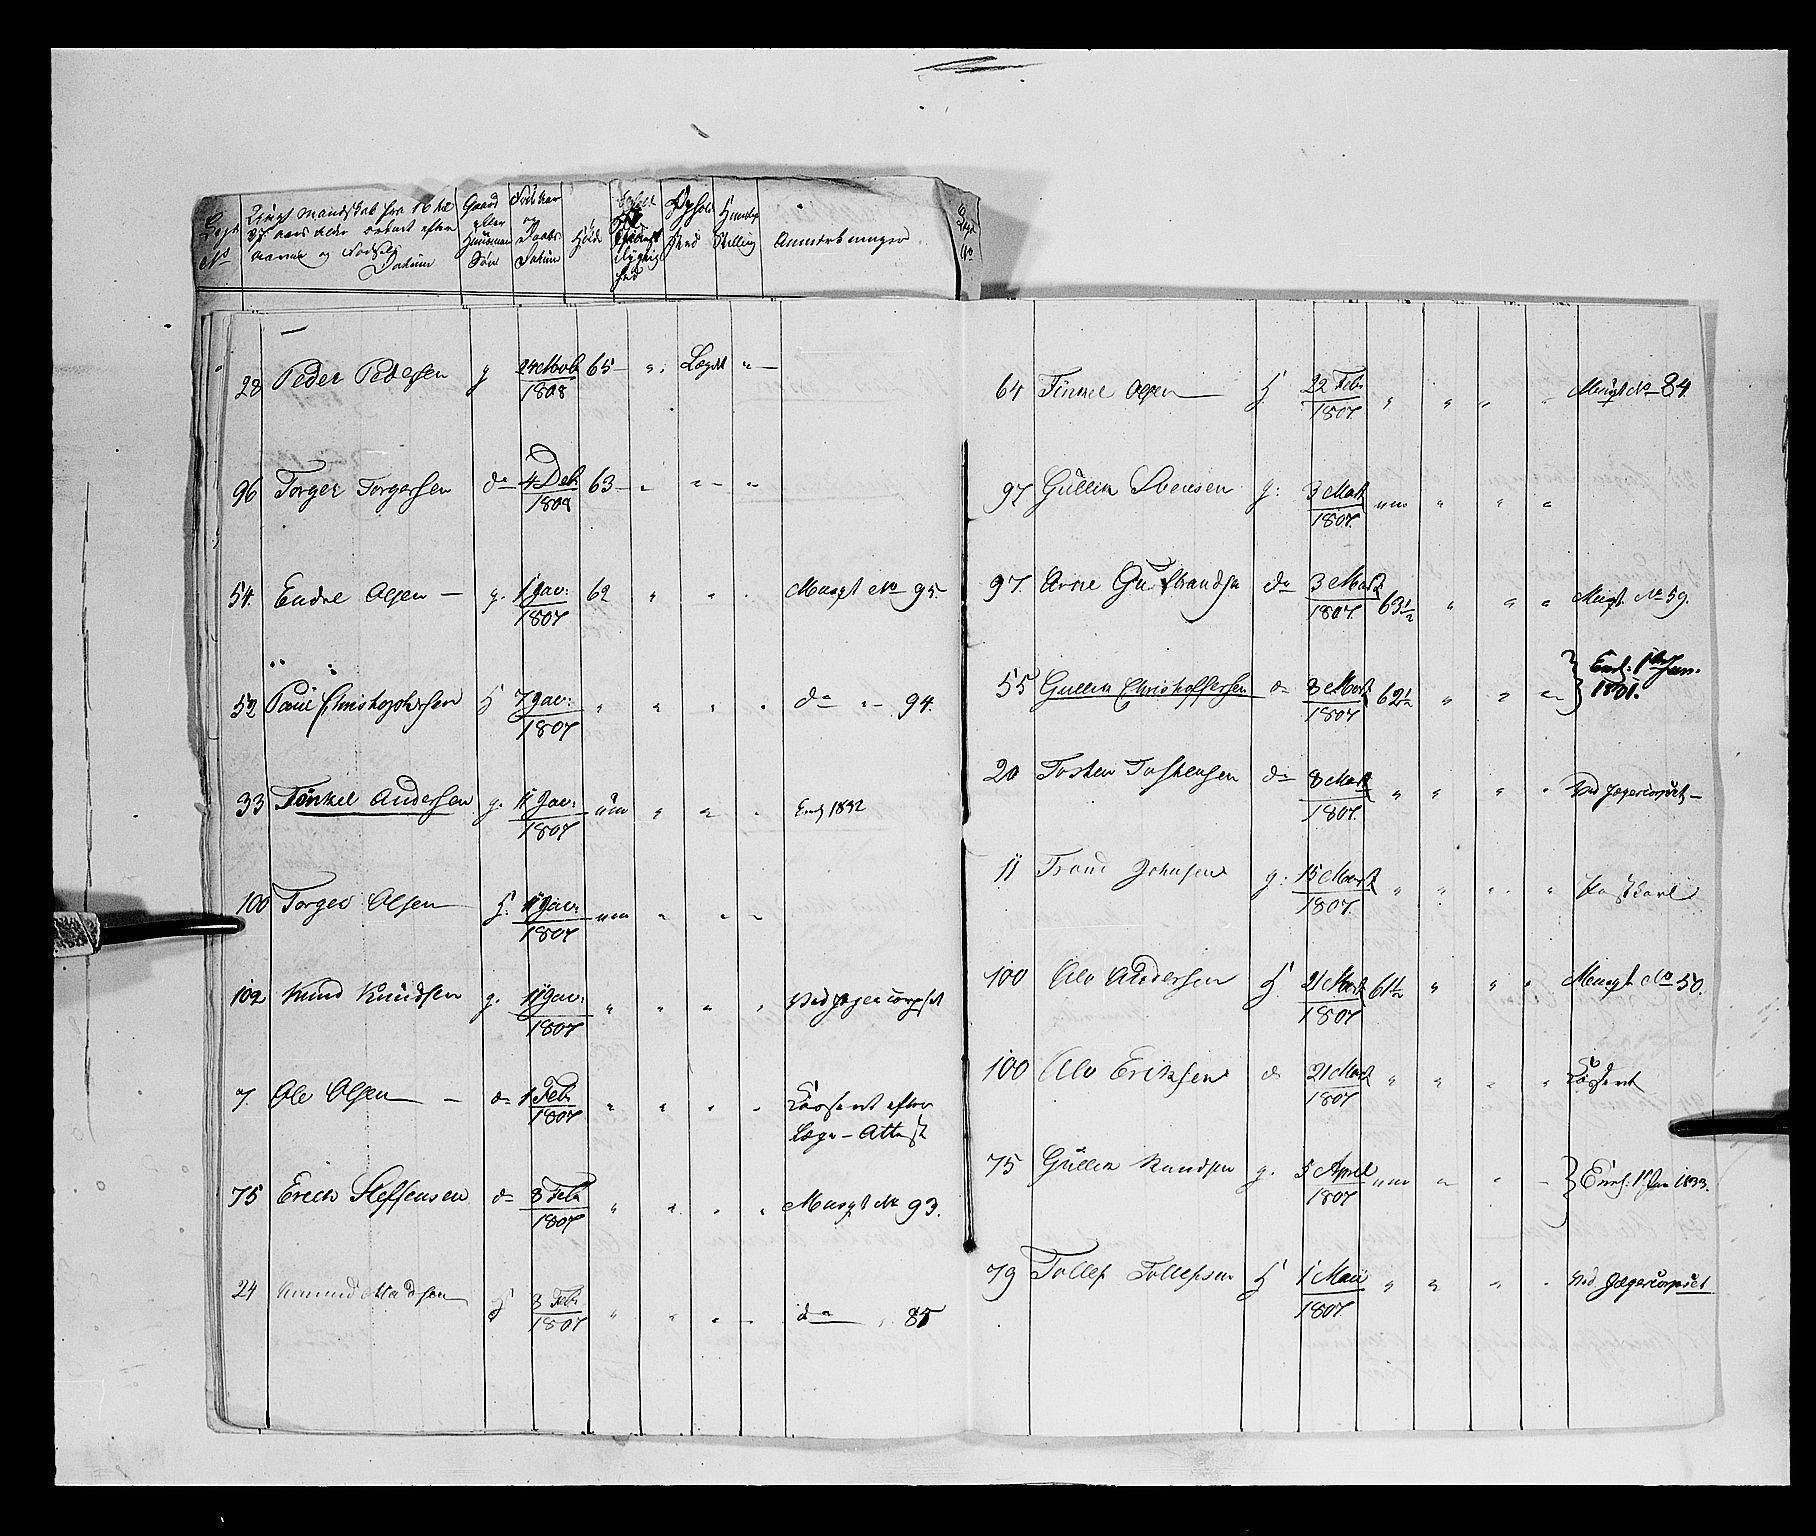 Legd No
Ungt Mandskab fra 16 til
37 Aars Alder ordnet efter
Navne og Fødsels
Datum
Gaard
eller
Huusmands
Søn
og
Daabs
Datum
Høide
Ophold
Sted
Stilling
Anmærkninger
Legd No
28 Peder Pedersen g 24 Novb 1808 65 " Lægd "
96 Torger Torgersen do 4 Deb 1808 63 " " "
54 Endre Olsen g. 1 Jan: 1807 62 " " " Mangt No 95.
52 Paul Christophersen H 7 Jan: 1807 " " " " do " 94.
33 Tinkel Andersen g. 11 Jan: 1807 um " " " Enr 1832
100 Torger Olsen H. 11 Jan: 1807 um " " "
102 Knud Knudsen g. 11 Jan: 1807 " " " " Ved Jægercorpset
7. Ole Olsen do 1 Feb 1807 " " " " Casseret efter
Læge-Attest
75 Erich Steffensen do 3 Feb 1807 " " " " Mangt No 93.
24 Amund Madsen H 3 Feb 1807 " " " " do " 85
64 Tinkel Olsen H 22 Feb 1807 " " " " Mangt No 84.
97 Gullik Svensen g: 3 Mart 1807. um " " "
97. Arne Gulbrandsn do 3 Mart 1807. 63½ " " " Mangt. No 59.
55 Gullik Christoffersen do 8 Mart 1807 62½ " " " Enr: 1ste Jan.
1831.
20 Tosten Tostensen do 8 Mart 1807. " " " " Ved Jægercorpset
11 Trond Johnsen g: 15 Mart 1807. " " " " Postkarl
100 Ole Andersen H 21 Mart 1807 61½ " " " Mangt No 50.
100 Ole Eriksen do 21 Mart 1807 " " " " Casseret
75 Gullik Knudsen g. 5 April 1807 um " " " Enr: 1 Jan 1833.
79 Tollef Tollefsen H 1 Maii 1807. " " " " Ved Jægercorpset